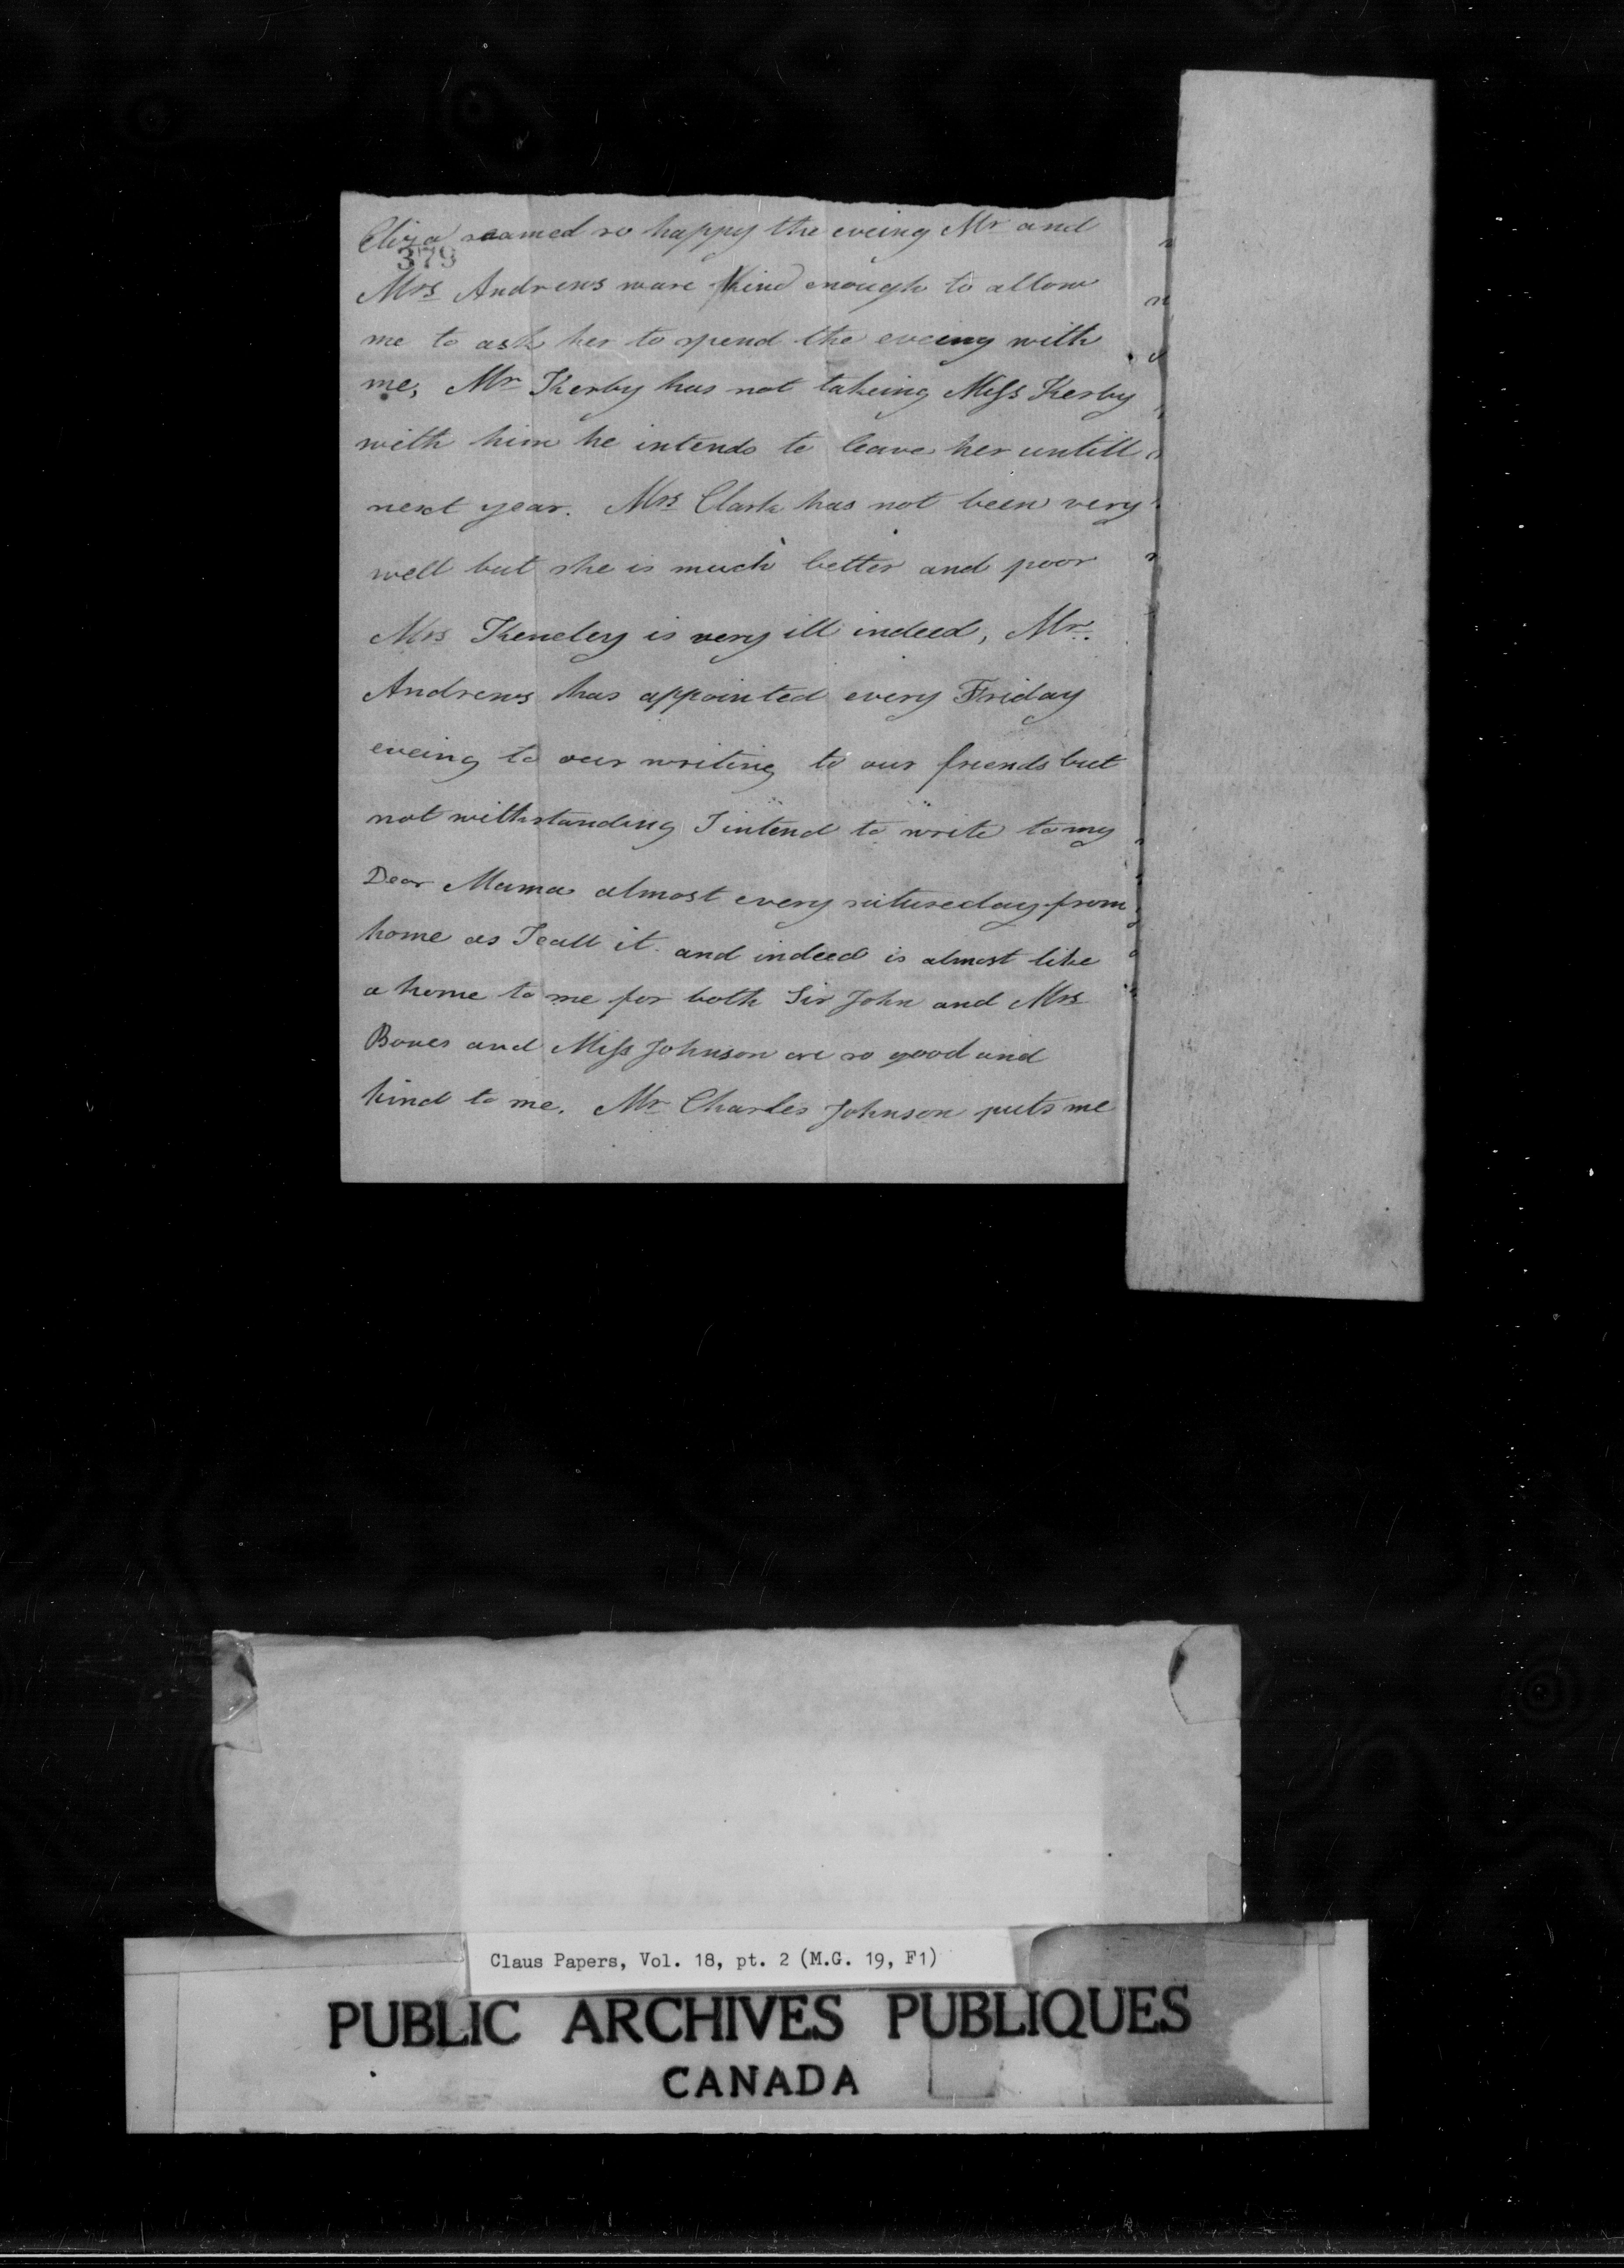 Eliza seamed so happy the eveing Mr and
379
Mrs Andrews ware Kind enough to allow
me to ask her to spend the eveing with
me, Mr Kerby has not takeing Miss Kerby
with him he intends to leave her untill
next year. Mrs Clark has not been very
well but she is much better and poor
Mrs is very ill indeed, Mr.
Andrews has appointed every Friday
eveing to our writing to our friends but
not withstanding I intend to write to my
Dear Mama almost every satureday from
home as I call it. and indeed is almost like
a home to me for both Sir John and Mrs
Bowes and Miss Johnson are so good and
kind to me. Mr Charles Johnson puts me
Claus Papers, Vol. 18, pt. 2 (M.G. 19, F1)
PUBLIC ARCHIVES PUBLIQUES
CANADA